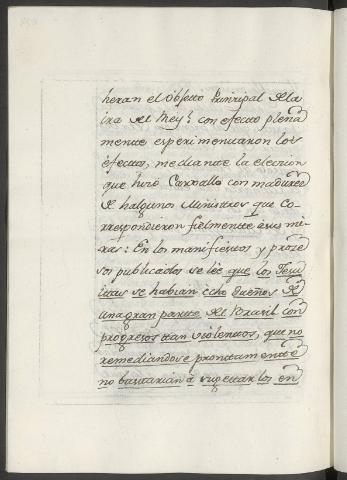 heran el Obgetto Prinzipal de la
ira del Rey: con efecto plena
mente experimentaron los
efectos, mediante la eleccion
que hizo Carvallo con madurez
de halgunos Ministros que co-
rrespondieron fielmente a sus mi-
ras: En los manifiestos y proze
sos publicados se leè que los Jesu
itas se habian echo dueños de
una gran parte del Brasil con
progresos tan violentos, que no
remediandose prontamente
no bastarian à sugettar los en